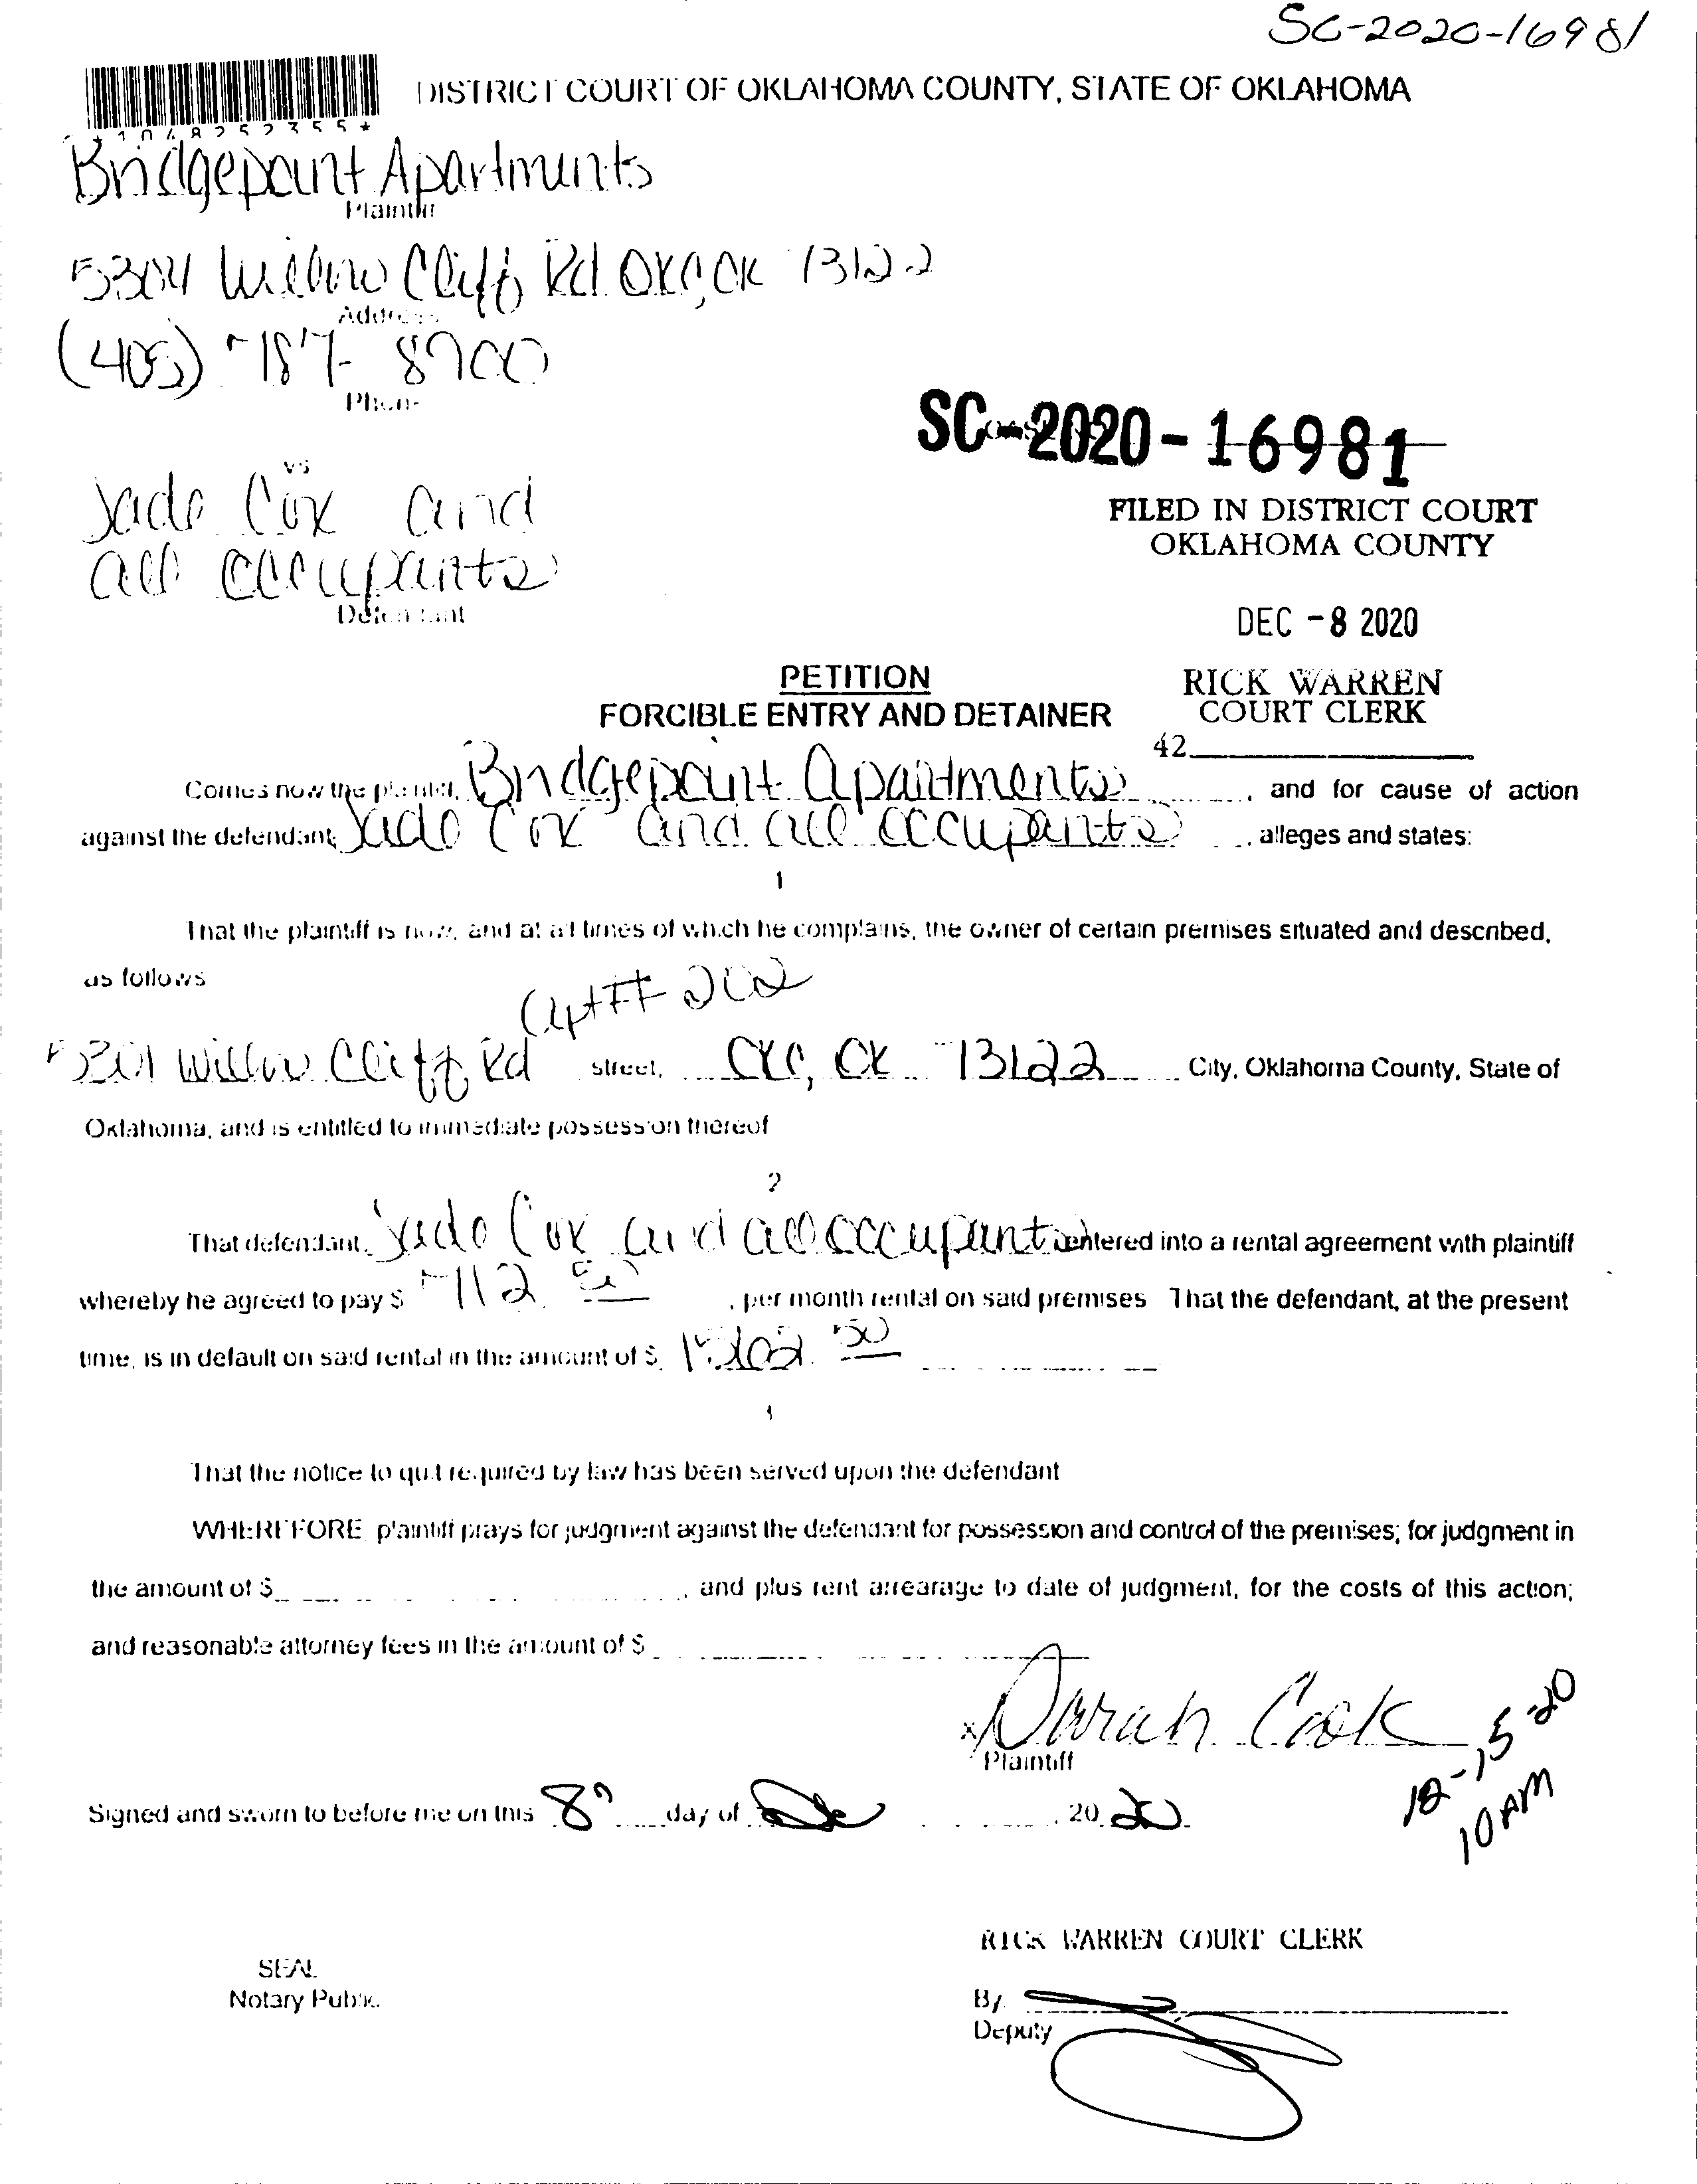 SC-2020-16981
DISTRICT COURT OF OKLAHOMA COUNTY, STATE OF OKLAHOMA
*1048252355*
Bridgepoint Apartments
Plaintiff
5304 Willow Cliff Rd OKC, OK 73122
Address
(405) 787-8900
Phone
SC-2020-16981
CASE NO
vs
FILED IN DISTRICT COURT
OKLAHOMA COUNTY
Jade Cox and
all occupants
Defendant
DEC -8 2020
PETITION
FORCIBLE ENTRY AND DETAINER
RICK WARREN
COURT CLERK
42
Comes now the plaintiff, Bridgepoint Apartments, and for cause of action
against the defendant, Jade Cox and all occupants, alleges and states:
1
That the plaintiff is now, and at all times of which he complains, the owner of certain premises situated and described,
as follows
Apt# 202
5301 Willow Cliff Rd street, OKC, OK 73122 City, Oklahoma County, State of
Oklahoma, and is entitled to immediate possession thereof
2
That defendant, Jade Cox and all occupants entered into a rental agreement with plaintiff
whereby he agreed to pay $ 712 , per month rental on said premises That the defendant, at the present
time, is in default on said rental in the amount of $ 50
That the notice to quit required by law has been served upon the defendant
WHEREFORE, plaintiff prays for judgment against the defendant for possession and control of the premises; for judgment in
the amount of $ , and plus rent arrearage to date of judgment, for the costs of this action;
and reasonable attorney fees in the amount of $
x Darrah Cook
Plaintiff
12-15-20
10 AM
Signed and sworn to before me on this 8 day of Dec , 20 20
RICK WARREN COURT CLERK
SEAL
Notary Public
By
Deputy